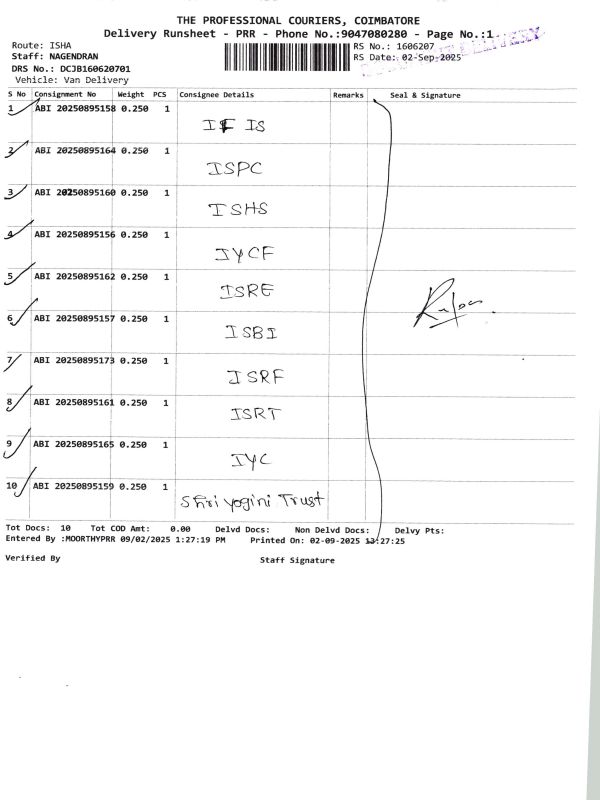 THE PROFESSIONAL COURIERS, COIMBATORE
Delivery Runsheet - PRR - Phone No.:9047080280 - Page No.:1
Route: ISHA
RS No.: 1606207
Staff: NAGENDRAN
RS Date: 02-Sep-2025
DRS No.: DCJB160620701
Vehicle: Van Delivery
S No Consignment No Weight PCS Consignee Details Remarks Seal & Signature
1 ABI 20250895158 0.250 1
IF IS
2 ABI 20250895164 0.250 1
ISPC
3 ABI 20250895160 0.250 1
ISHS
4 ABI 20250895156 0.250 1
IYCF
5 ABI 20250895162 0.250 1
ISRE
6 ABI 20250895157 0.250 1
ISBI
7 ABI 20250895173 0.250 1
ISRF
8 ABI 20250895161 0.250 1
ISRT
9 ABI 20250895165 0.250 1
IYC
10 ABI 20250895159 0.250 1
Shri yogini Trust
Tot Docs: 10 Tot COD Amt: 0.00 Delvd Docs: Non Delvd Docs: Delvy Pts:
Entered By :MOORTHYPRR 09/02/2025 1:27:19 PM Printed On: 02-09-2025 13:27:25
Verified By Staff Signature